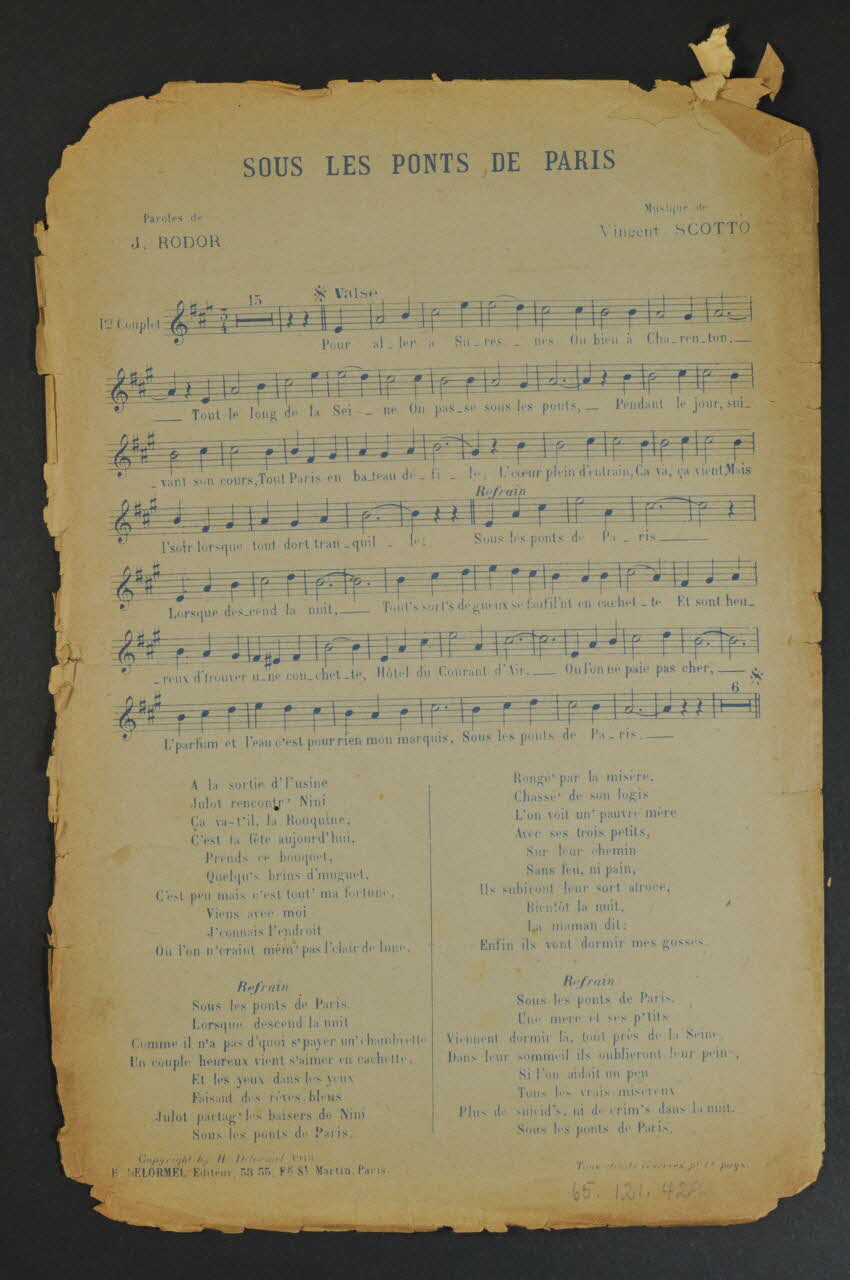 SOUS LES PONTS DE PARIS
Paroles de
J. RODOR
Musique de
Vincent SCOTTO
15
Valse
1er Couplet
Pour al_ler à Su_res_nes Ou bien à Cha_ren_ton,
Tout le long de la Sei_ne On pas_se sous les ponts, Pendant le jour, sui_
_vant son cours, Tout Paris en ba_teau dé_fi_le, L'cœur plein d'entrain, Ca va, ça vient, Mais
Refrain
l'soir lorsque tout dort tran_quil_le: Sous les ponts de Pa_ris
Lorsque des_cend la nuit, Tout's sort's de gueux se faufil'nt en cachet_te Et sont heu_
_reux d'trouver u_ne cou_chet_te, Hôtel du Courant d'Air, Ou l'on ne paie pas cher,
6
L'parfum et l'eau c'est pour rien mon marquis, Sous les ponts de Pa_ris.
A la sortie d'l'usine
Julot rencontr' Nini
Ça va-t'il, la Rouquine,
C'est ta fête aujourd'hui,
Prends ce bouquet,
Quelqu's brins d'muguet,
C'est peu mais c'est tout' ma fortune,
Viens avec moi
J'connais l'endroit
Où l'on n'craint mêm' pas l'clair de lune.
Refrain
Sous les ponts de Paris,
Lorsque descend la nuit
Comme il n'a pas d'quoi s'payer un' chambrette
Un couple heureux vient s'aimer en cachette,
Et les yeux dans les yeux
Faisant des rêves bleus
Julot partag' les baisers de Nini
Sous les ponts de Paris.
Rongé' par la misère,
Chassé' de son logis
L'on voit un' pauvre mère
Avec ses trois petits,
Sur leur chemin
Sans feu, ni pain,
Ils subiront leur sort atroce,
Bientôt la nuit,
La maman dit:
Enfin ils vont dormir mes gosses.
Refrain
Sous les ponts de Paris,
Une mère et ses p'tits
Viennent dormir là, tout près de la Seine
Dans leur sommeil ils oublieront leur peine,
Si l'on aidait un peu
Tous les vrais miséreux
Plus de suicid's, ni de crim's dans la nuit.
Sous les ponts de Paris.
Copyright by H. Delormel 1913
H. DELORMEL, Editeur, 53-55, Fg St Martin, Paris.
Tous droits réservés pr ts pays.
65. 121. 42